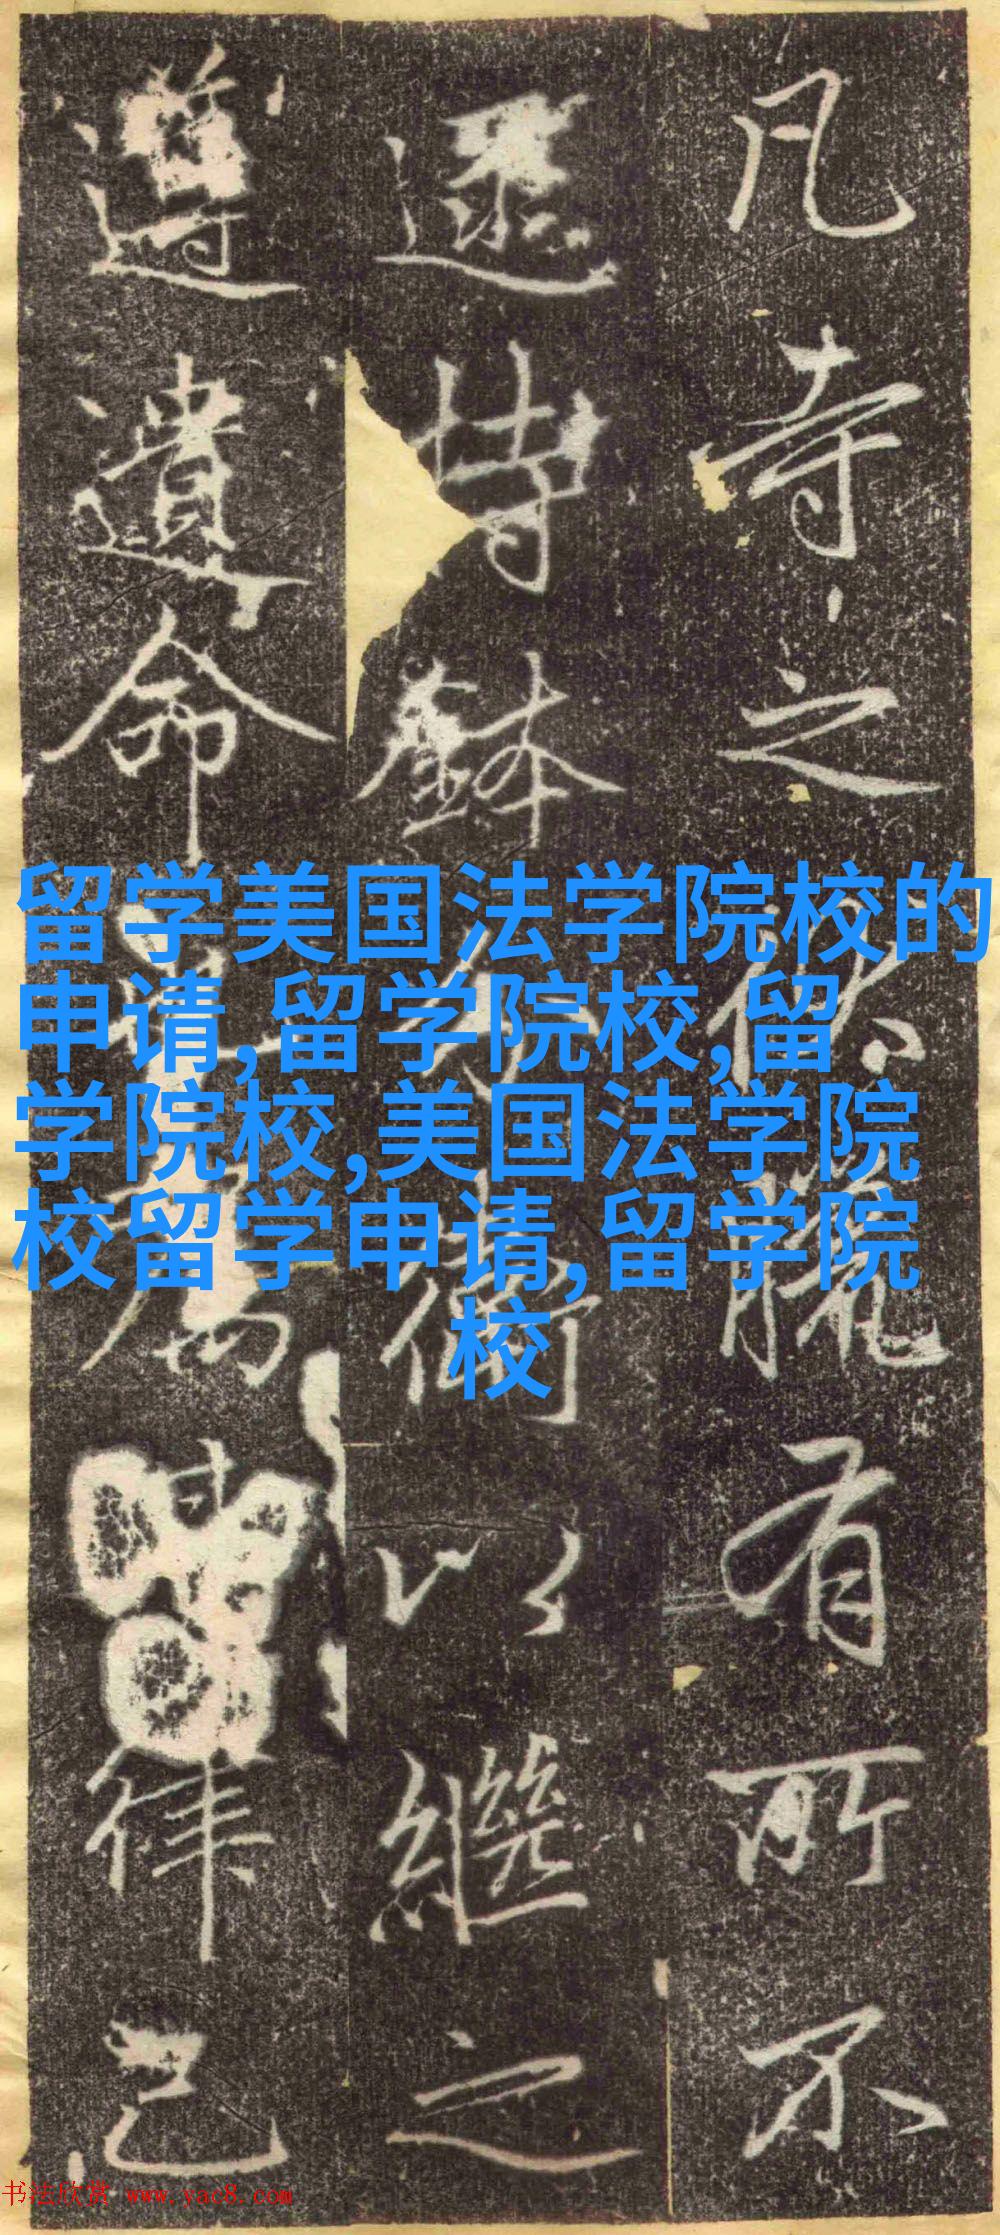 凡寺之伏臈有所不
逮持鉢衢以繼之
遵遺命為律己
留学美国法学院校的
申请,留学院校,留
学院校,美国法学院
校留学申请,留学院
校
书法欣赏 www.yac8.com